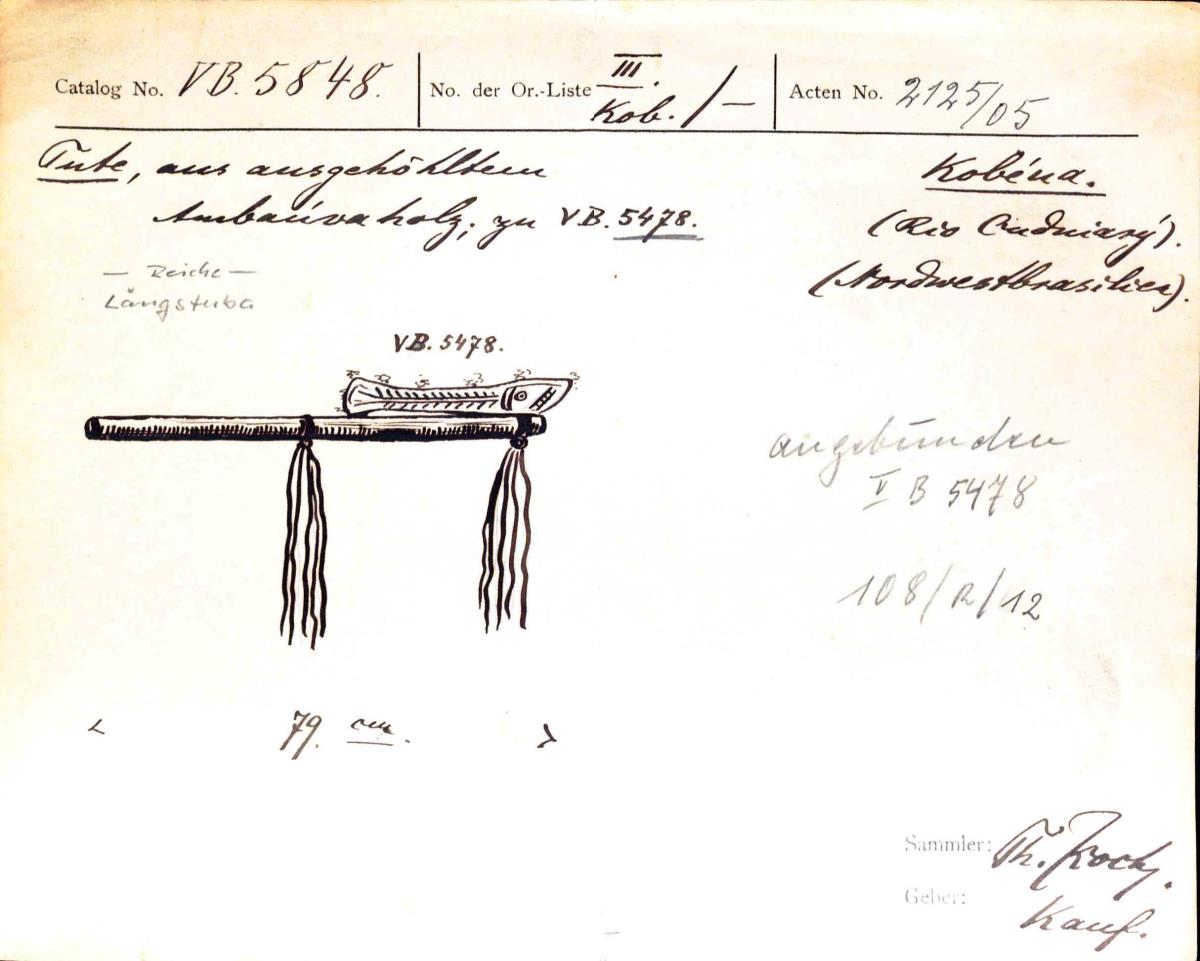 Catalog No. VB. 5848.
No. der Or.-Liste III. Kob. /—
Acten No. 2125/05
Tute, aus ausgehöhltem
Ambaúvaholz; zu VB. 5478.
Kobéua.
(Rio Cuduiarý).
(Nordwestbrasilien).
— Reiche —
Längstuba
VB. 5478.
angebunden
V B 5478
108/R/12
79. cm.
Sammler: Th. Koch.
Geber: Kauf.